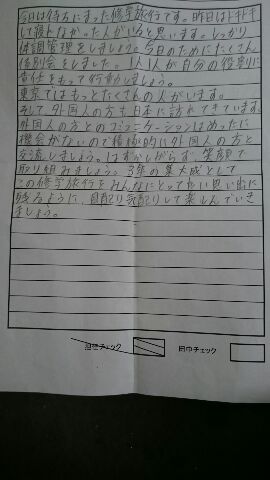 今日は待ちにまった修学旅行です。昨日はドキドキ
して寝れなかった人がいると思います。しっかり
体調管理をしましょう。今日のためにたくさん
係別会をしました。1人1人が自分の役割に
責任をもって行動しましょう。
東京ではもっとたくさんの人がいます。
そして外国人の方も日本に訪れてきています。
外国人の方とのコミュニケーションはめったに
機会がないので積極的に外国人の方と
交流しましょう。はずかしがらず、笑顔で
取り組みましょう。3年の集大成として
この修学旅行をみんなにとって良い思い出に
残るように、目配り気配りして楽しんでいき
ましょう。
担任チェック
田中チェック